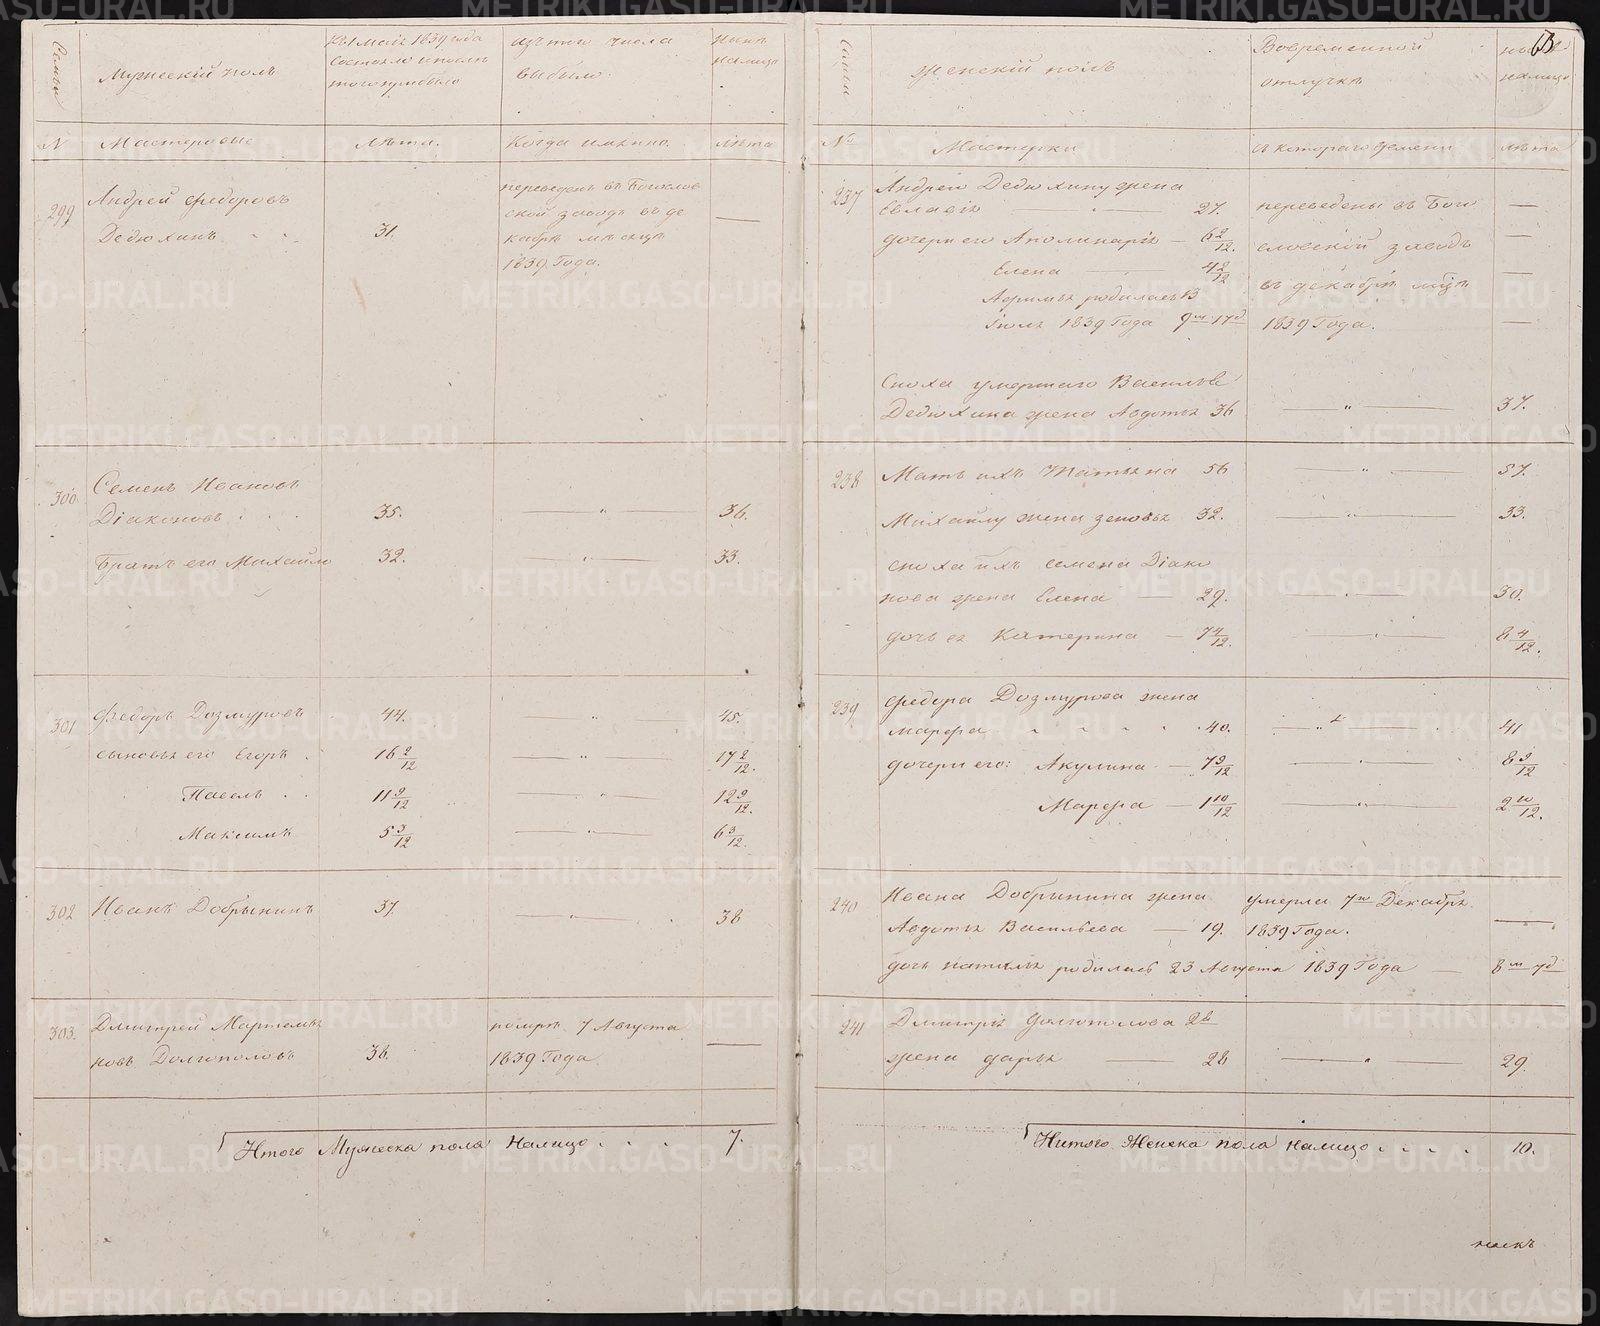 Семьи
Мужескій полъ
Къ 1 маія 1839 года
состояло и послѣ
того прибыло
изъ того числа
выбыло.
Нынѣ
налицо
№
Мастеровые
Лѣта.
Когда имянно.
лѣта
299
Андрей Федоровъ
Дедюхинъ
31.
переведенъ въ Богослов
ской заводъ въ де
кабрѣ мѣсяцѣ
1839 Года.
300.
Семенъ Ивановъ
Діаконовъ
35.
36.
Братъ его Михайло
32.
33.
301
Федоръ Дозмуровъ
44.
45.
сыновья его Егоръ
16 2/12
17 2/12.
Павелъ
11 9/12
12 9/12.
Максимъ
5 3/12
6 3/12.
302
Иванъ Добрынинъ
37.
38
303.
Дмитрей Мартемья
новъ Долгополовъ
38.
помре 7 Августа
1839 Года
Итого Мужеска пола налицо
7.
Семьи
женскій полъ
Вовременной
отлучкѣ
налицо
№
Мастерки
съ котораго времени
лѣта
237
Андрею Дедюхину жена
Евлавія
27.
дочери его Аполинарія — 6 2/12.
Елена
4 2/12
родилась В
Іюлѣ 1839 Года 9м 17д
переведены въ Бого
словскій заводъ
въ декабрѣ мцѣ
1839 Года.
Сноха умершаго Василья
Дедюхина жена Авдотья 36
37.
238
Мать ихъ Татьяна 56
57.
Михайлу жена Зеновья 32.
33.
сноха ихъ семена Діако
нова жена Елена — 29.
30.
дочь ея Катерина — 7 4/12.
8 4/12.
239
Федора Дозмурова жена
марфа
40.
41
дочери его: Акулина — 7 9/12
8 9/12
Марфа — 1 10/12
2 10/12.
240
Ивана Добрынина жена
Авдотья Васильева — 19.
умерла 7го Декабря
1839 Года.
дочь наталья родилась 23 Августа 1839 Года —
8м 7д
241
Дмитрія Долгополова 28
жена дарья — 28
29.
Итого Женска пола налицо
10.